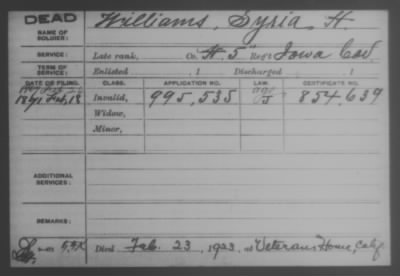 DEAD
NAME OF SOLDIER:
Williams, Syria H.
SERVICE:
Late rank, Co. H. 5" Reg't Iowa Cav.
TERM OF SERVICE:
Enlisted , 1 Discharged , 1
DATE OF FILING. CLASS. APPLICATION NO. LAW. CERTIFICATE NO.
1891 Feb, 18 Invalid, 995,535 age J 854,639
Widow,
Minor,
ADDITIONAL SERVICES:
REMARKS:
Died Feb. 23, 1923, at Veterans Home, Calif.